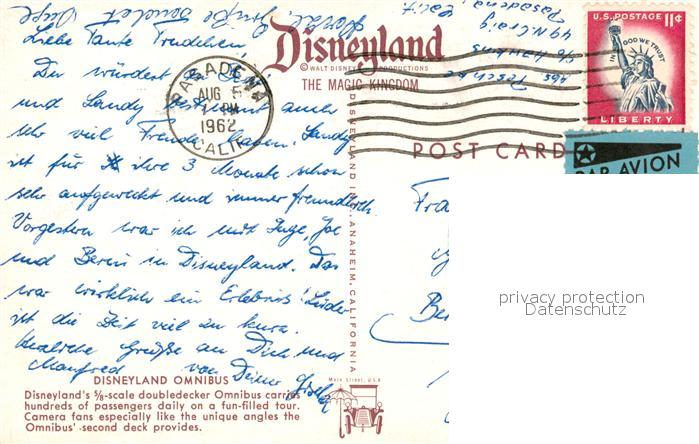 Liebe Tante Trudchen!
Du würdest an
und Sandy bestimmt auch
sehr viel Freude haben! Sandy
ist für ihre 3 Monate schon
sehr aufgeweckt und immer freundlich.
Vorgestern war ich mit Inge, Joe
und Bernie in Disneyland. Das
war wirklich ein Erlebnis! Leider
ist die Zeit viel zu kurz.
Herzliche Grüße an Dich und
Manfred von Deiner
Disneyland
© WALT DISNEY PRODUCTIONS
THE MAGIC KINGDOM
PASADENA
AUG
PM
1962
CALIF.
49 N Craig
Pasadena
Calif.
U.S. POSTAGE 11¢
IN GOD WE TRUST
LIBERTY
POST CARD
PAR AVION
DISNEYLAND INC., ANAHEIM, CALIFORNIA
privacy protection
Datenschutz
Main Street, U.S.A.
DISNEYLAND OMNIBUS
Disneyland's ⅝-scale doubledecker Omnibus carries
hundreds of passengers daily on a fun-filled tour.
Camera fans especially like the unique angles the
Omnibus' second deck provides.